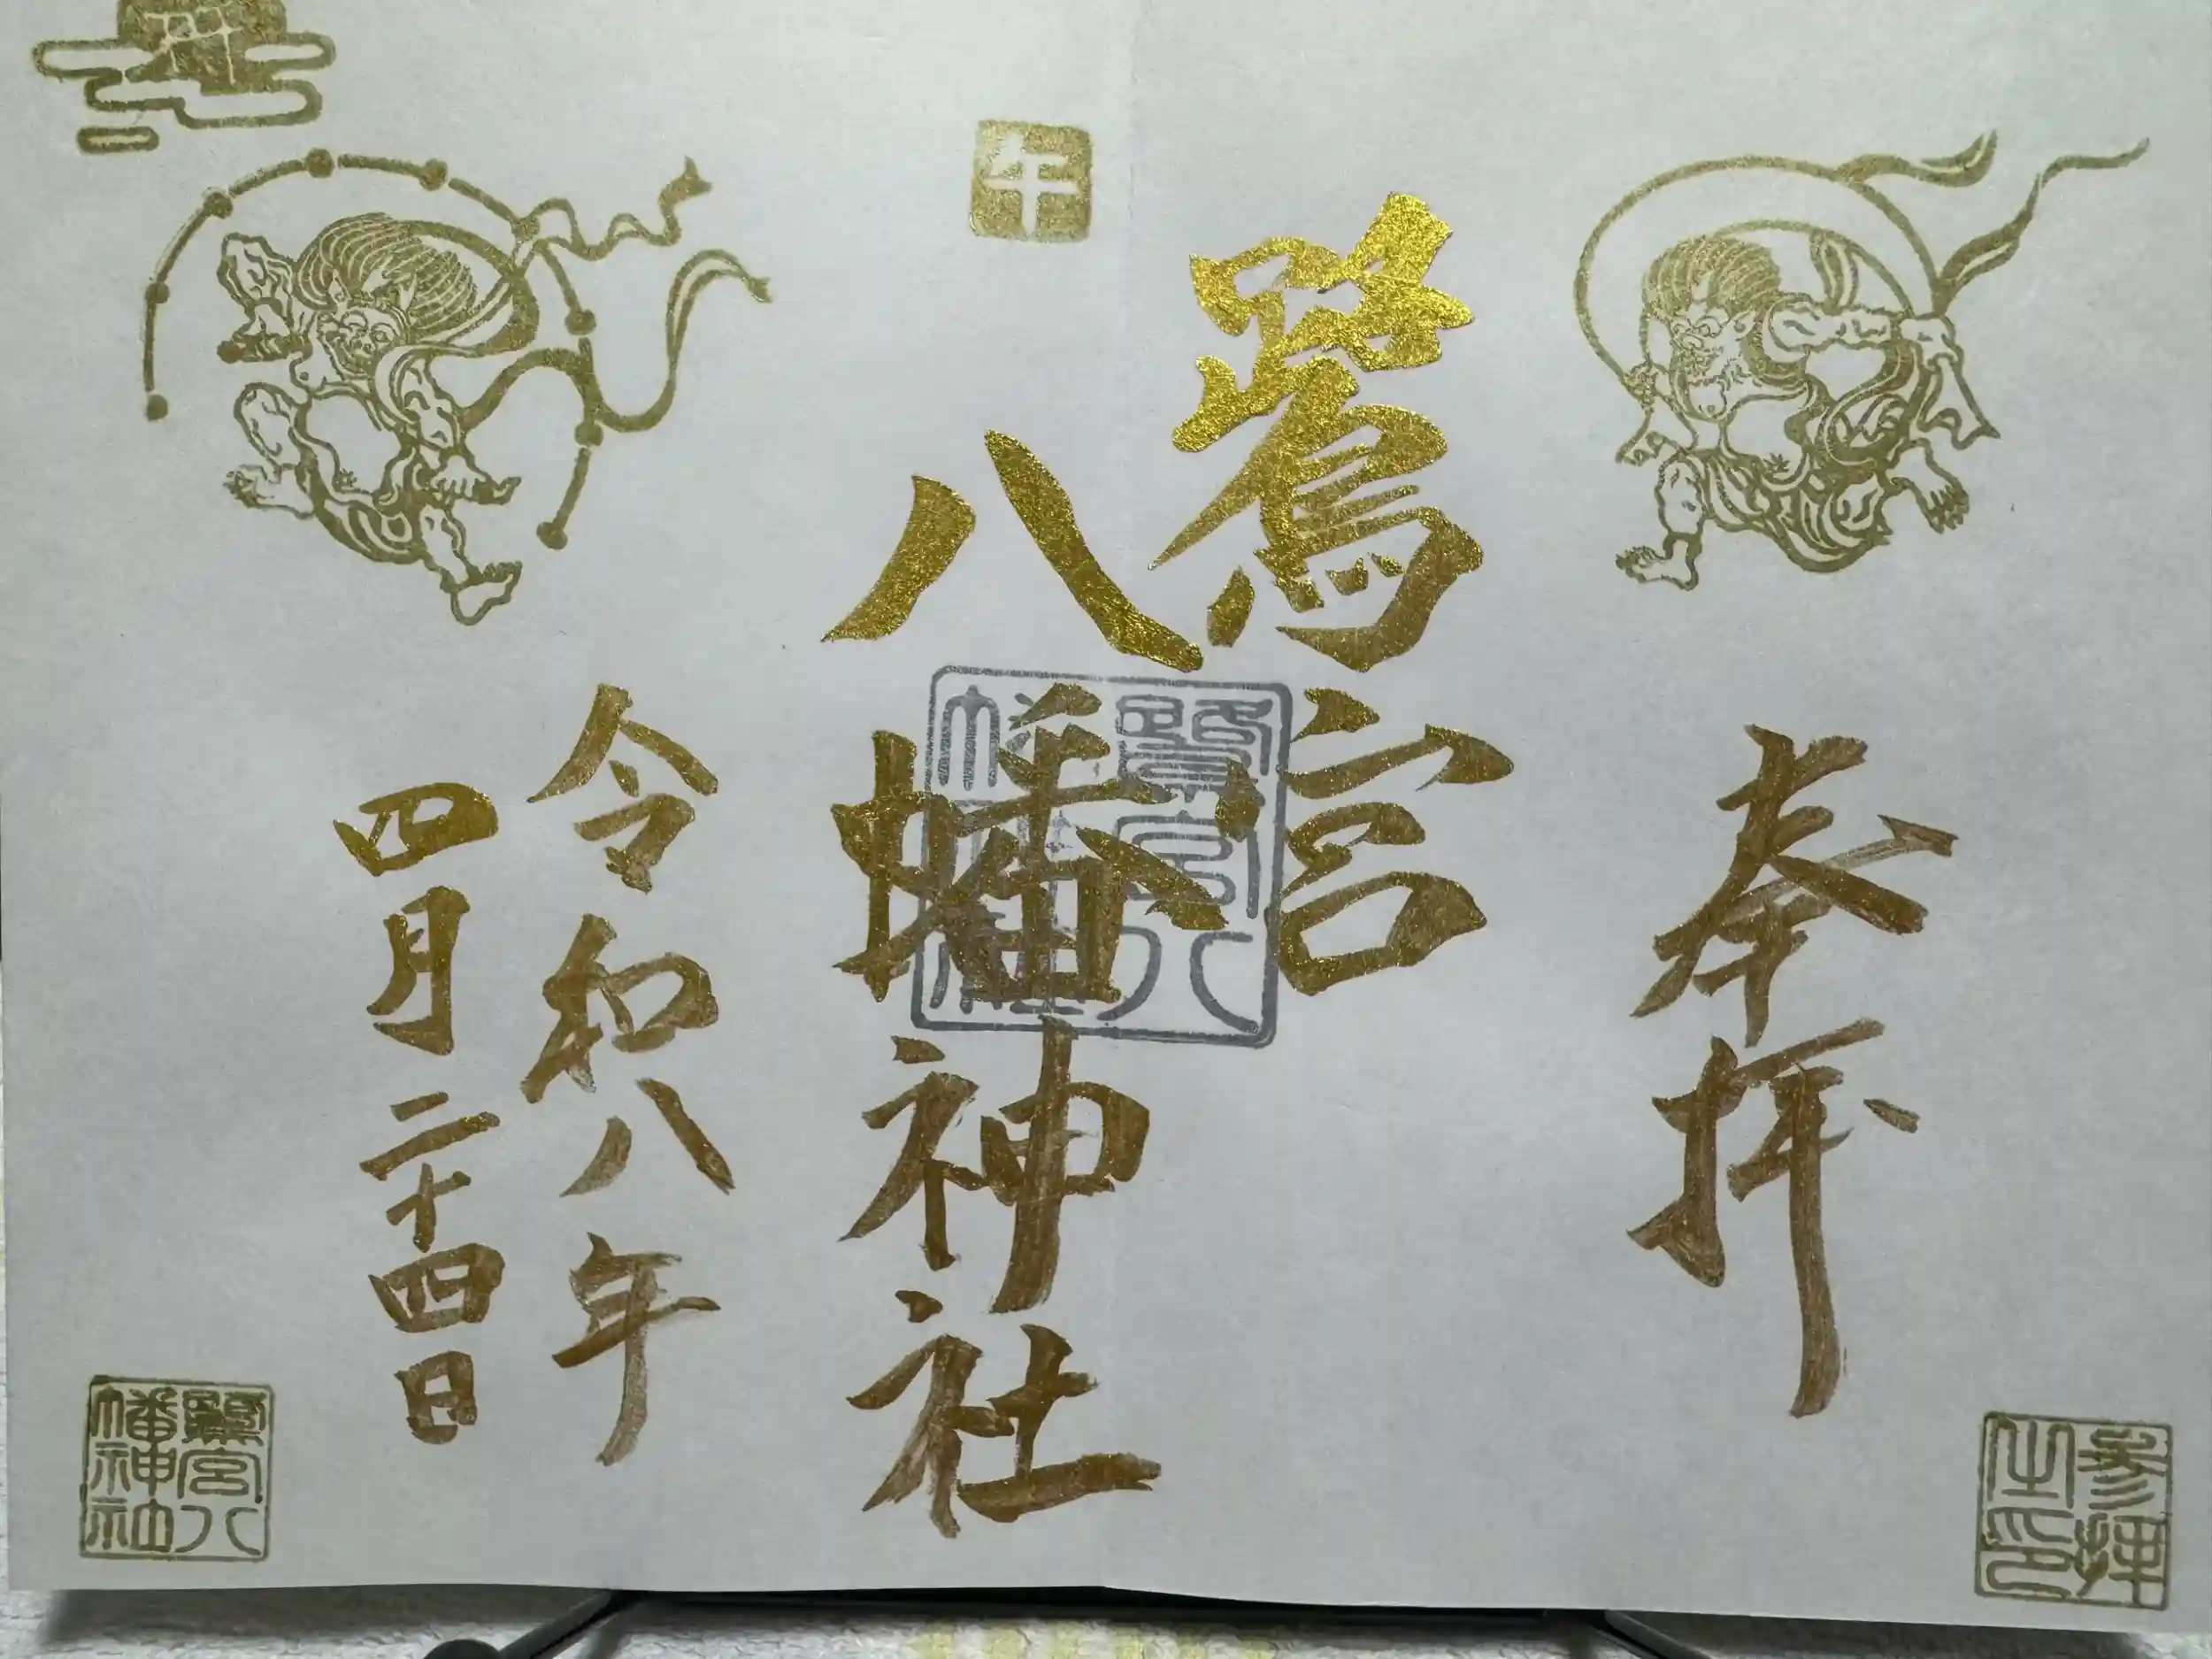 奉拝
参拝
之印
午
鷺宮
八幡神社
鷺宮八
幡神社
令和八年
四月二十四日
鷺宮八
幡神社